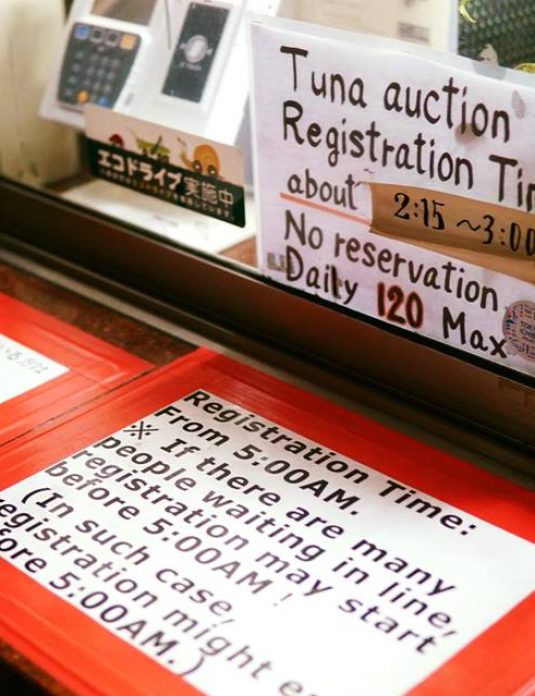 Tuna auction
Registration
about
2:15 ~3:00
No reservation
Daily 120 Max
エコドライブ実施中
Registration Time:
From 5:00AM.
※ If there are many
people waiting in line,
registration may start
before 5:00AM !
(In such case,
registration might e
fore 5:00AM.)